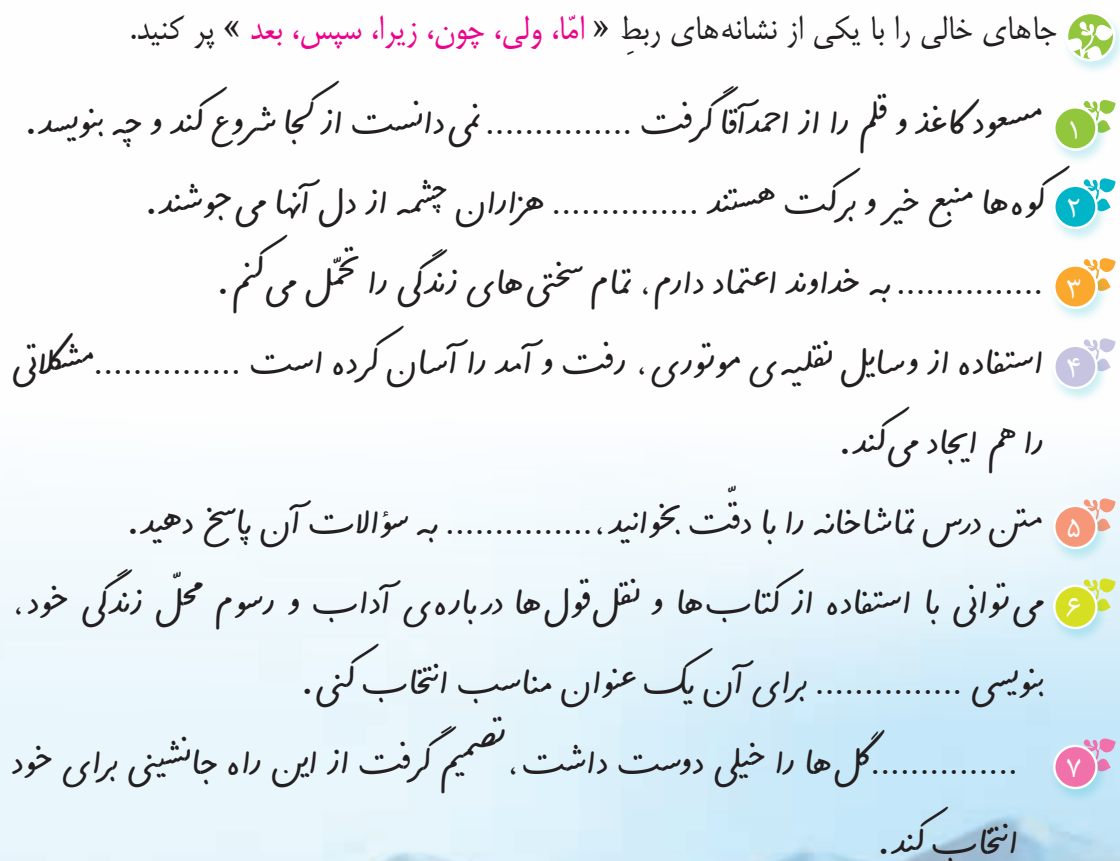 جاهای خالی را با یکی از نشانه‌های ربطِ « امّا، ولی، چون، زیرا، سپس، بعد » پر کنید.
۱ مسعود کاغذ و قلم را از احمدآقا گرفت ............... نمی‌دانست از کجا شروع کند و چه بنویسد.
۲ کوه‌ها منبع خیر و برکت هستند ............... هزاران چشمه از دل آنها می‌جوشند.
۳ ............... به خداوند اعتماد دارم، تمام سختی‌های زندگی را تحمّل می‌کنم.
۴ استفاده از وسایل نقلیه‌ی موتوری، رفت و آمد را آسان کرده است ............... مشکلاتی
را هم ایجاد می‌کند.
۵ متن درس تماشاخانه را با دقّت بخوانید، ............... به سؤالات آن پاسخ دهید.
۶ می‌توانی با استفاده از کتاب‌ها و نقل‌قول‌ها درباره‌ی آداب و رسوم محلّ زندگی خود،
بنویسی ............... برای آن یک عنوان مناسب انتخاب کنی.
۷ ............... گل‌ها را خیلی دوست داشت، تصمیم گرفت از این راه جانشینی برای خود
انتخاب کند.